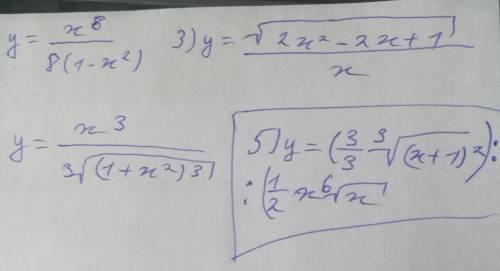 y = x⁸ / 8(1-x²)  3) y = √(2x² - 2x + 1) / x
y = x³ / 3√((1+x²)3)
5) y = (3/3 ³√(x+1)²) :
: (1/2 x⁶√x